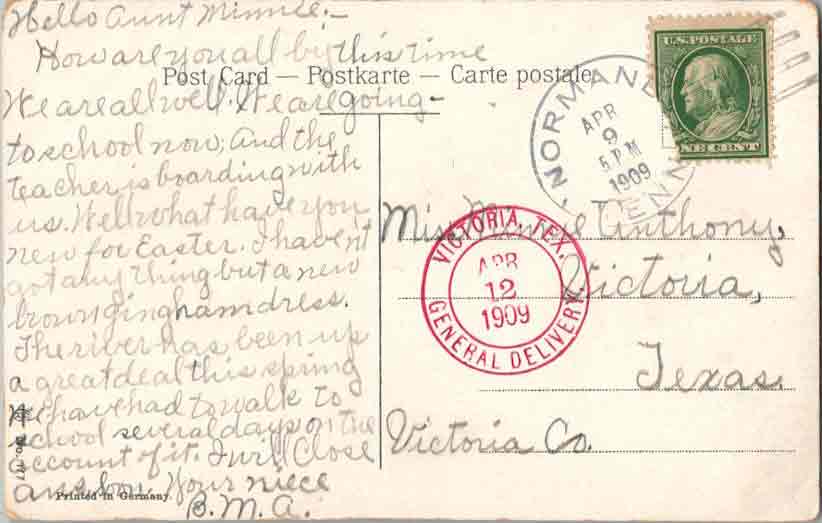 Hello Aunt Minnie:-
How are you all by this time
We are all well. We are going-
to school now; And the
teacher is boarding with
us. Well what have you
new for Easter. I haven't
got anything but a new
brown gingham dress.
The river has been up
a great deal this spring
We have had to walk to
school several days on the
account of it. I will Close
Your niece
B. M. A.
Post Card — Postkarte — Carte postale
Printed in Germany
U.S. POSTAGE
ONE CENT
NORMAND
APR
9
5 PM
1909
TENN
VICTORIA, TEX.
APR
12
1909
GENERAL DELIVERY
Miss Minnie Anthony,
Victoria,
Texas.
Victoria Co.